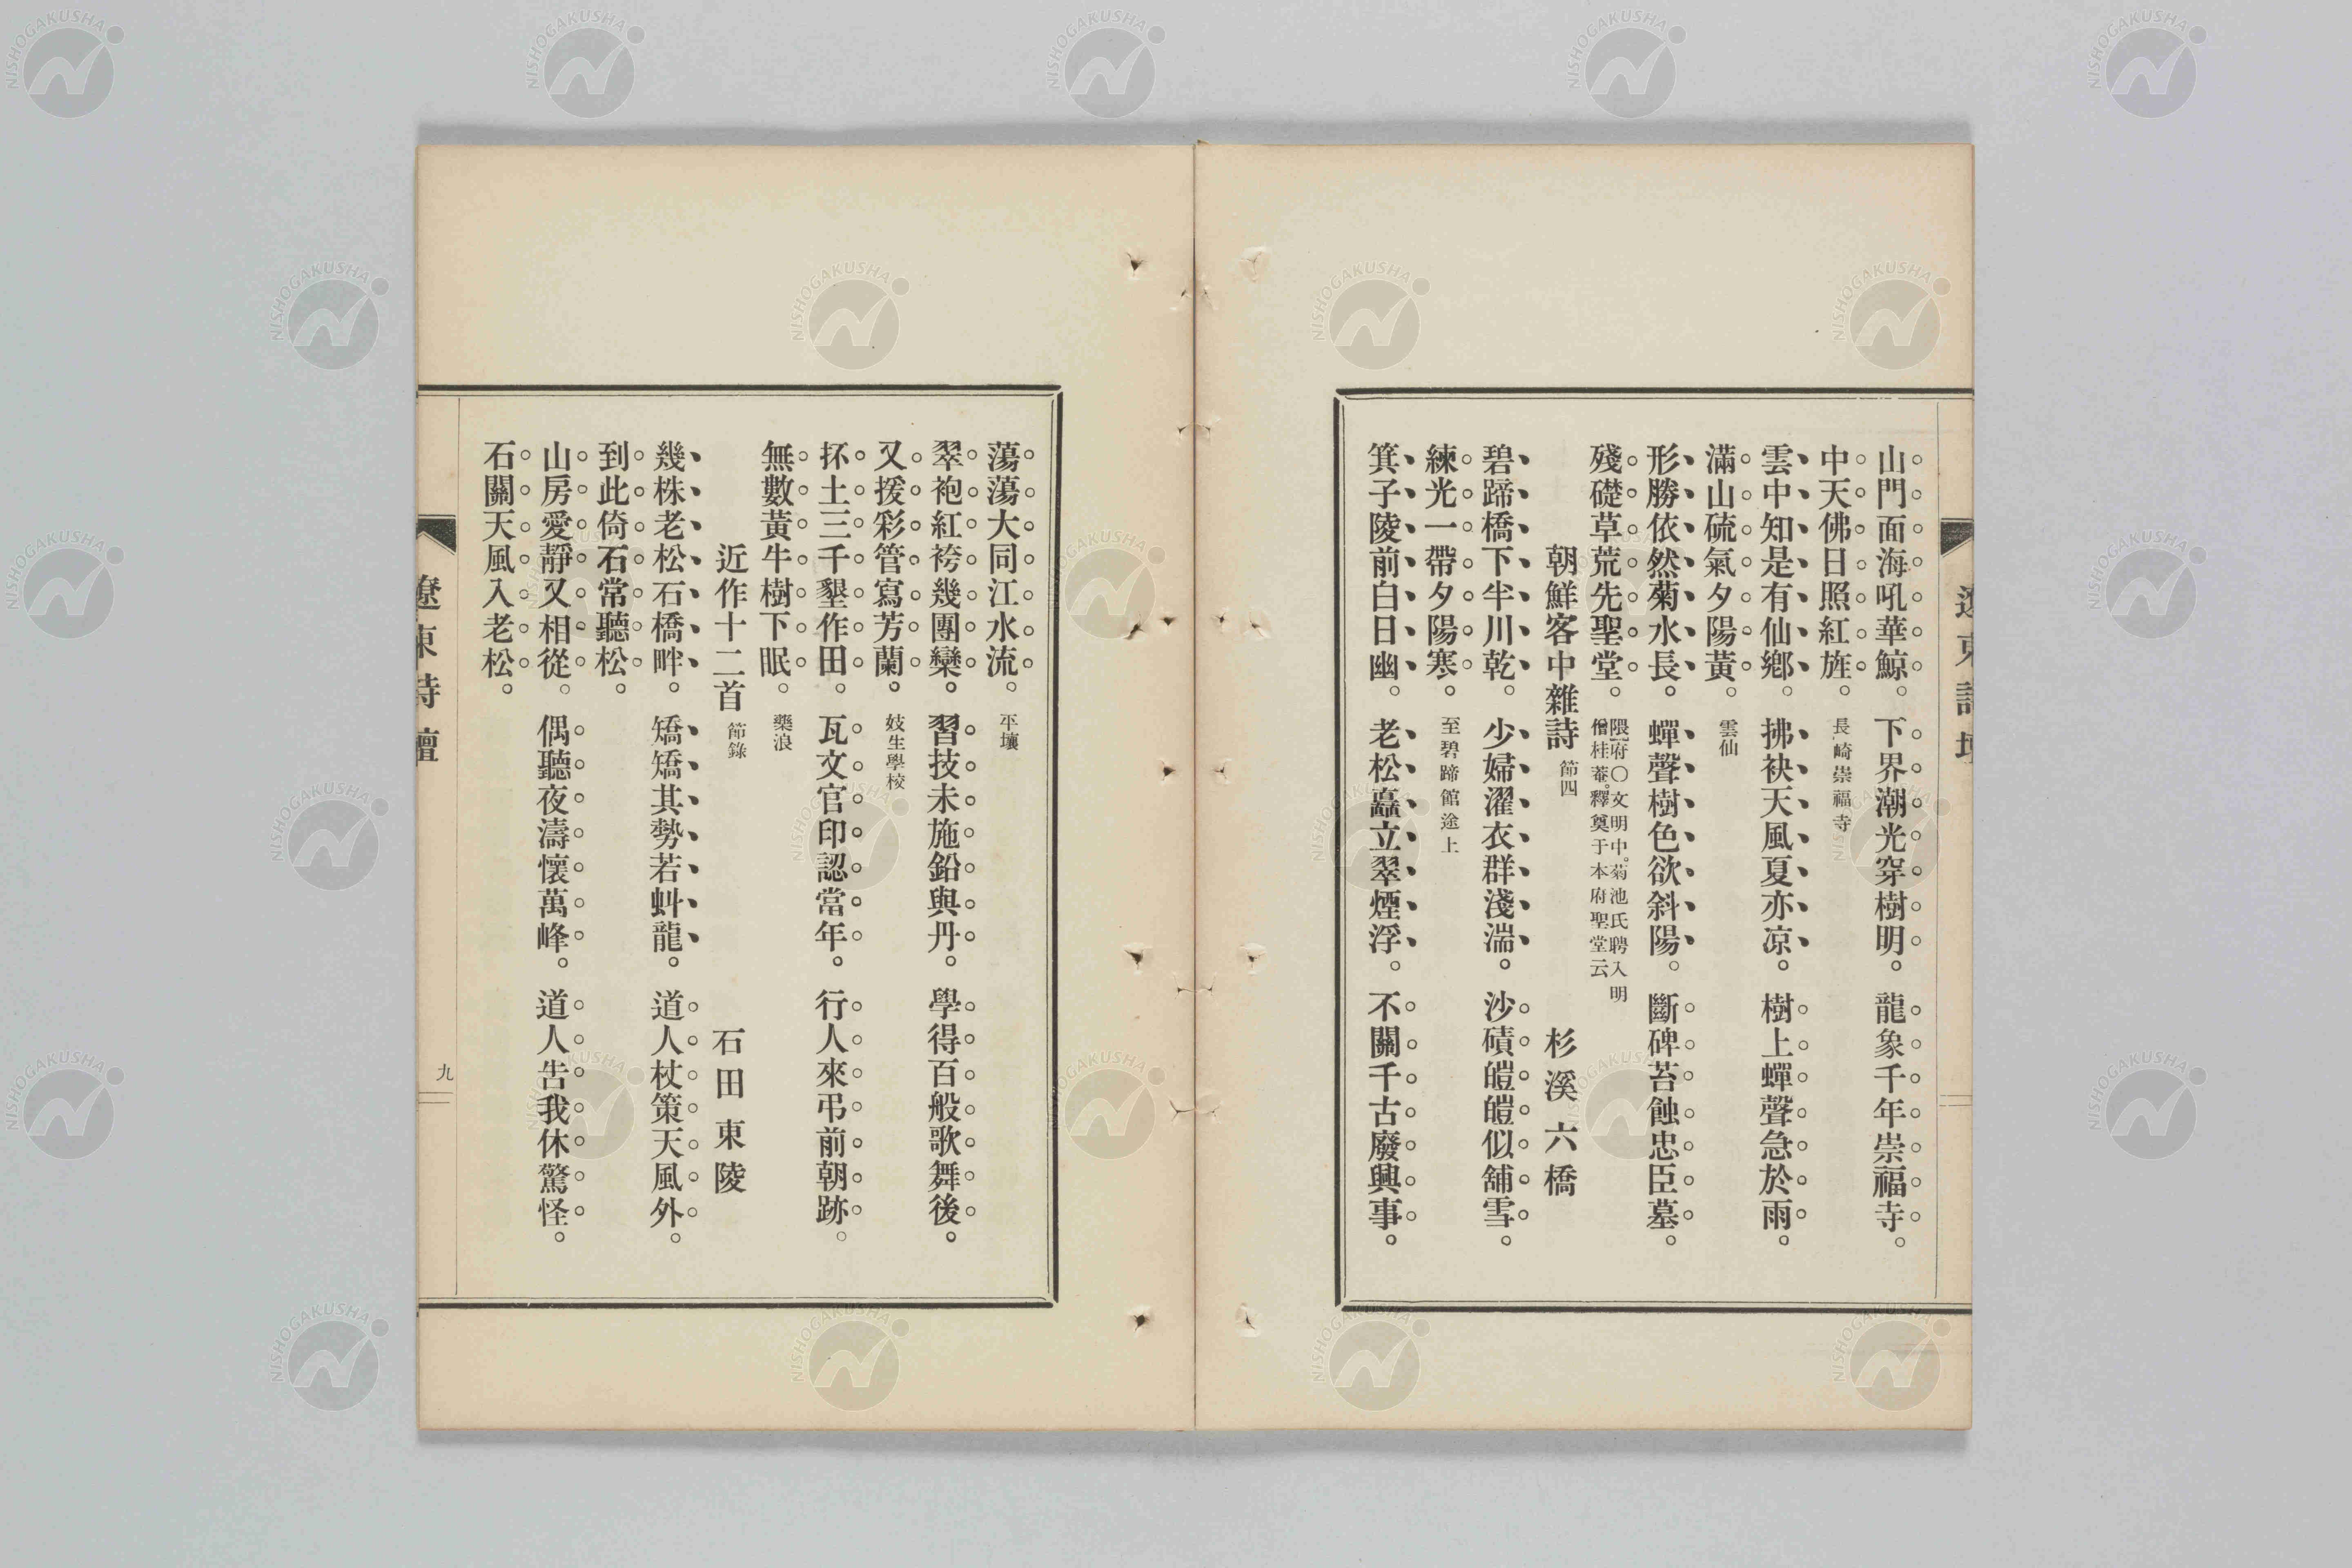 山門面海吼華鯨。下界潮光穿樹明。龍象千年崇福寺。
中天佛日照紅旌。長崎崇福寺
雲中知是有仙鄕。拂袂天風夏亦凉。樹上蟬聲急於雨。
滿山硫氣夕陽黃。雲仙
形勝依然菊水長。蟬聲樹色欲斜陽。斷碑苔蝕忠臣墓。
殘礎草荒先聖堂。隈府〇文明中。菊池氏聘入明
僧桂菴。釋奠于本府聖堂云
朝鮮客中雜詩 節四 杉溪六橋
碧蹄橋下半川乾。少婦濯衣群淺湍。沙磧皚皚似舖雪。
練光一帶夕陽寒。至碧蹄館途上
箕子陵前白日幽。老松矗立翠煙浮。不關千古廢興事。
蕩蕩大同江水流。平壤
翠袍紅袴幾團欒。習技未施鉛與丹。學得百般歌舞後。
又援彩管寫芳蘭。妓生學校
抔土三千墾作田。瓦文官印認當年。行人來弔前朝跡。
無數黃牛樹下眠。樂浪
近作十二首 節錄 石田東陵
幾株老松石橋畔。矯矯其勢若虯龍。道人杖策天風外。
到此倚石常聽松。
山房愛靜又相從。偶聽夜濤懷萬峰。道人告我休驚怪。
石關天風入老松。
遼東詩壇
九
NISHOGAKUSHA